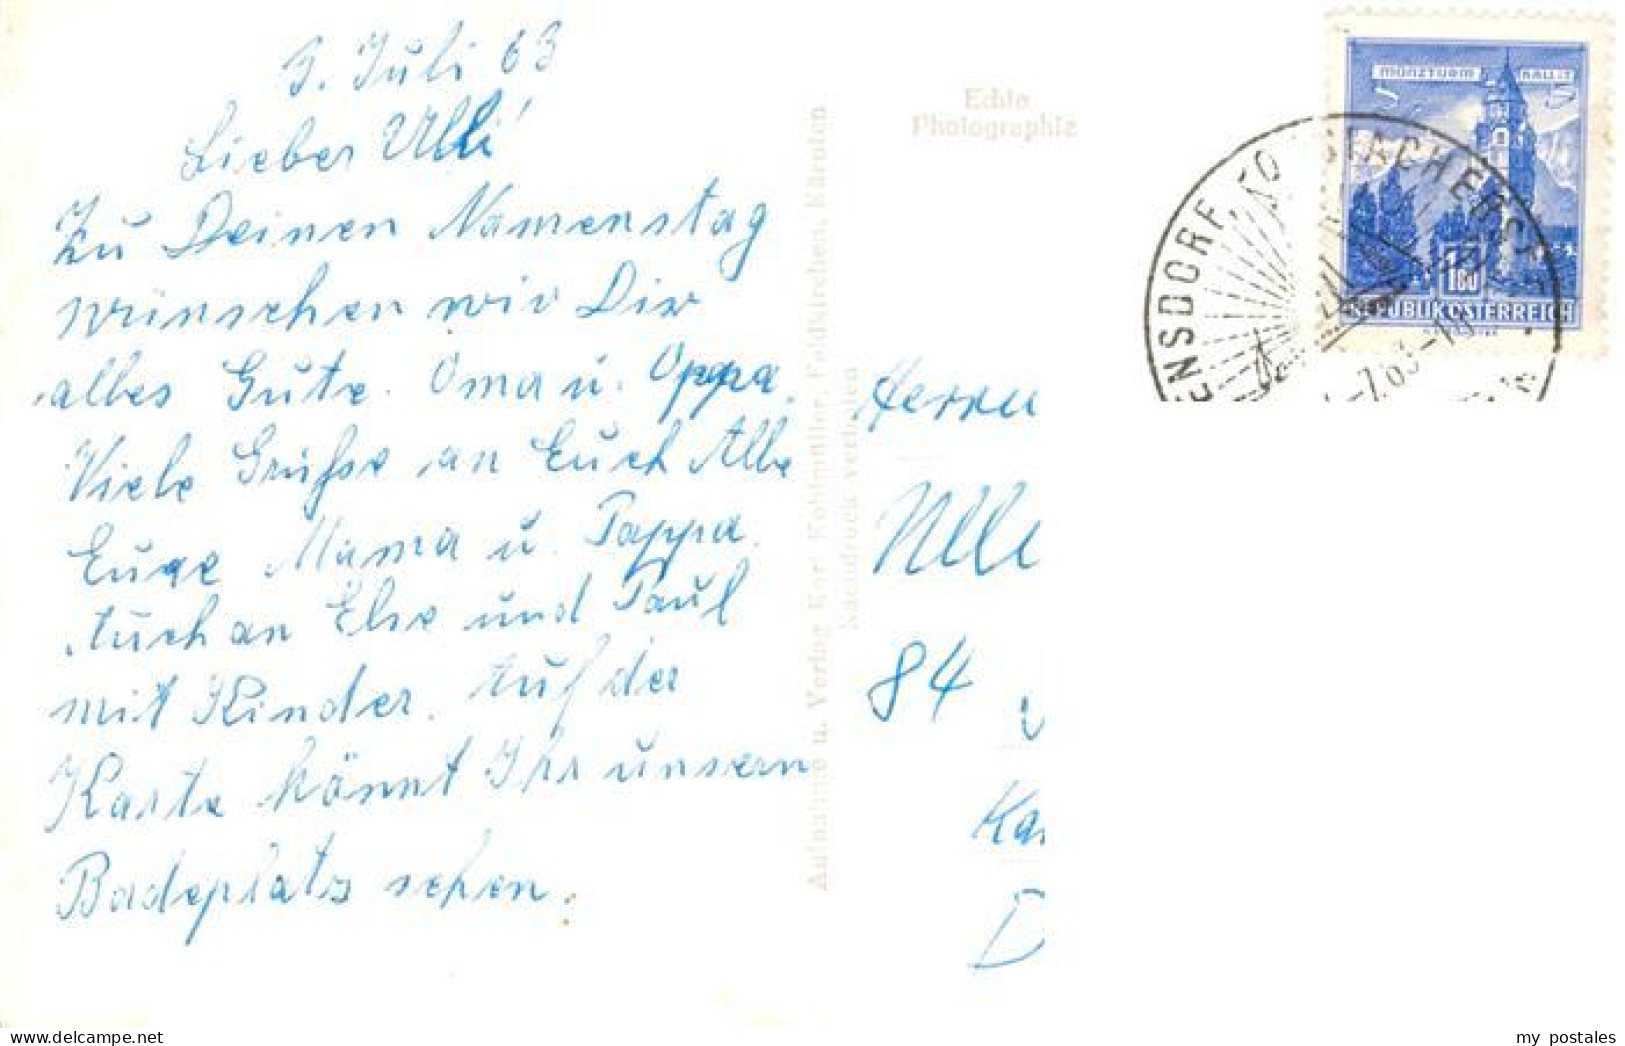 3. Juli 63
Lieber Ulli!
Zu Deinen Namenstag
wünschen wir Dir
alles Gute. Oma u. Oppa.
Viele Grüße an Euch Alle
Eure Mama u. Pappa.
Auch an Else und Paul
mit Kinder. Auf der
Karte könnt Ihr unsern
Badeplatz sehen.
Aufnahme u. Verlag Karl Kohlmüller, Feldkirchen, Kärnten
Nachdruck verboten
Echte
Photographie
MÜNZTURM HALL I.T.
S 5
1.80
REPUBLIK ÖSTERREICH
ENSDORF
7.63-18
Herrn
Ulli
84
Ka
D
my postales